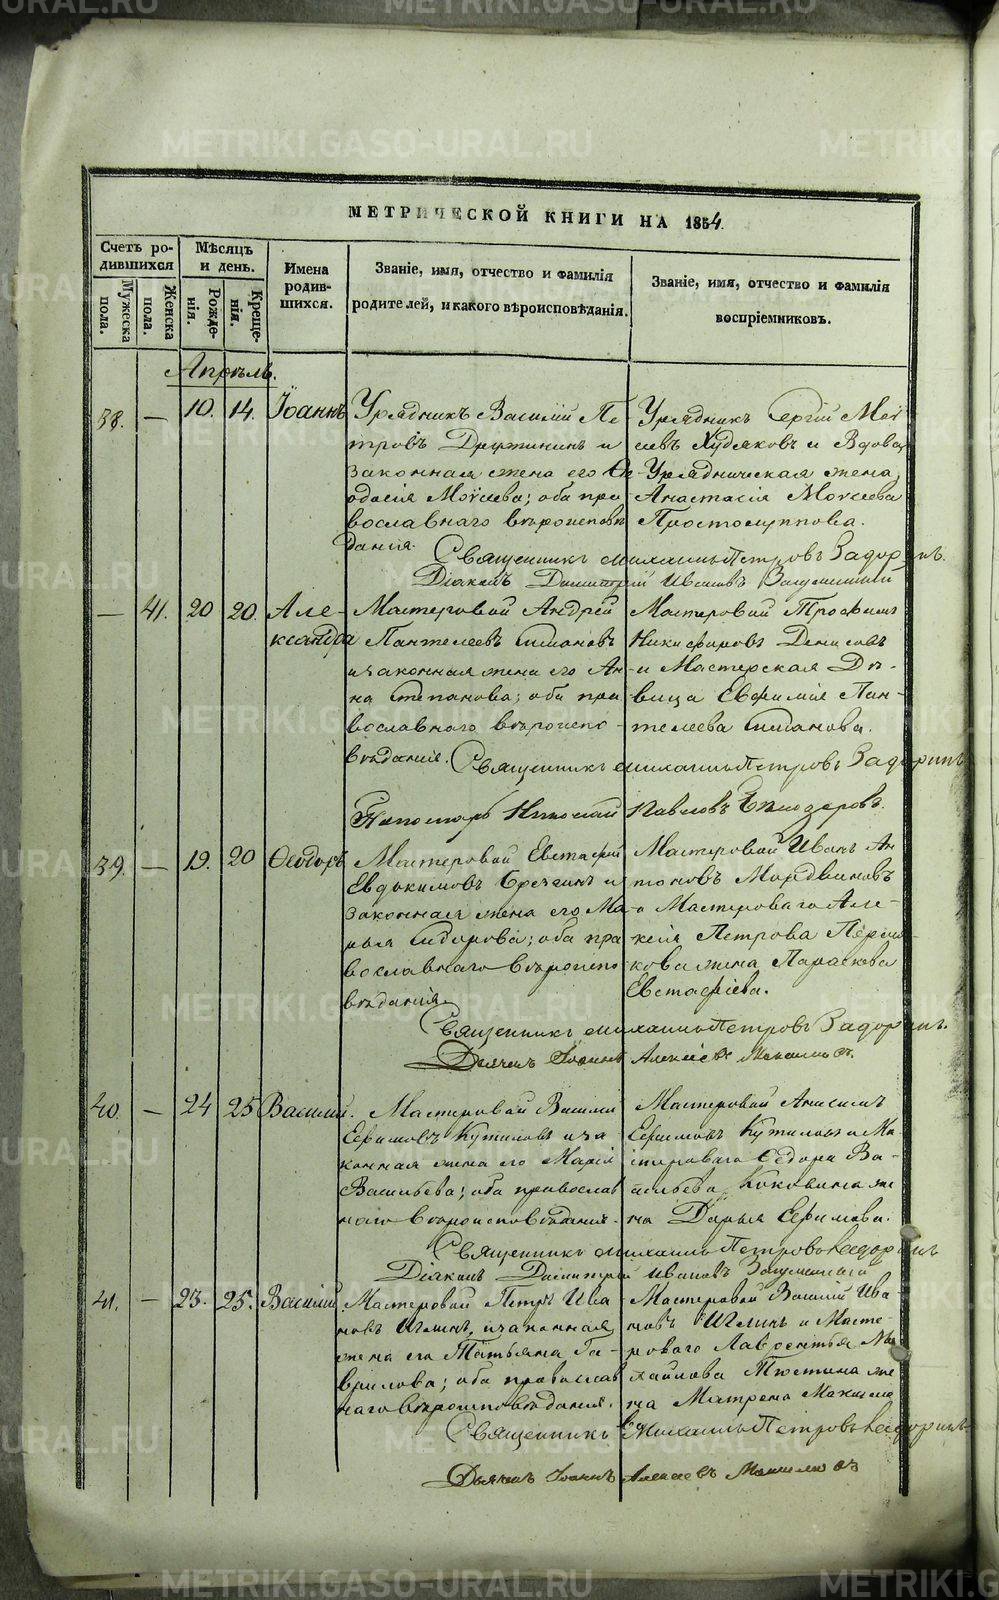 МЕТРИЧЕСКОЙ КНИГИ НА 1854
Счетъ ро-
дившихся
Мужеска
пола.
Женска
пола.
Мѣсяцъ
и день.
Рожде-
нія.
Креще-
нія.
Имена
родив-
шихся.
Званіе, имя, отчество и фамилія
родителей, и какого вѣроисповѣданія.
Званіе, имя, отчество и фамилія
воспріемниковъ.
Апрѣль.
38. — 10. 14. Іоаннъ
Урядникъ Василій Пе
тровъ Дружининъ и
законная жена его Ѳе
одосія Моѵсеева; оба пра
вославнаго вѣроисповѣ
данія.
Урядникъ Сергій Моѵ
сеевъ Худяковъ и Вдова
Урядническая жена
Анастасія Моѵсеева
Простолуппова.
Священникъ Михаилъ Петровъ Задоринъ.
Діаконъ Димитрій Ивановъ
— 41. 20 20. Але-
ксандра
Мастеровой Андрей
Пантелеевъ Симановъ
и законная жена его Ан-
на Степанова; оба пра
вославнаго вѣроиспо-
вѣданія.
Мастеровой Трофимъ
Никифоровъ Денисовъ
и Мастерская Дѣ-
вица Евфимія Пан-
телеева Симанова.
Священникъ Михаилъ Петровъ Задоринъ
Пономарь Николай Павловъ
39. — 19. 20 Ѳеодоръ
Мастеровой Евстафій
Евдокимовъ и
законная жена его Ма-
рья Сидорова; оба пра
вославнаго вѣроиспо
вѣданія
Мастеровой Иванъ Ан
тоновъ Мордвиновъ
и Мастероваго Але-
ксія Петрова
кова жена Параскова
Евстафіева.
Священникъ Михаилъ Петровъ Задоринъ.
Дьячекъ Іоаннъ Алексѣевъ
40. — 24 25 Василій.
Мастеровой Василій
Ефимовъ Кутиловъ и за
конная жена его Марія
Васильева; оба православ
наго вѣроисповѣданія.
Мастеровой Анисимъ
Ефимовъ Кутиловъ и Ма
стероваго Ѳедора Ва-
сильева Коковина же
на Дарья Ефимова.
Священникъ Михаилъ Петровъ Задоринъ
Діаконъ Димитрій Ивановъ
41. — 23. 25. Василій
Мастеровой Петръ Ива
новъ Иглинъ, и законная
жена его Татьяна Га-
врилова; оба православ
наго вѣроисповѣданія.
Мастеровой Василій Ива-
новъ Иглинъ и Масте-
роваго Лаврентья Ми
хайлова Тюстина же
на Матрена Максимо
ва
Священникъ Михаилъ Петровъ Задоринъ
Дьячекъ Іоаннъ Алексеевъ
METRIKI.GASO-URAL.RU